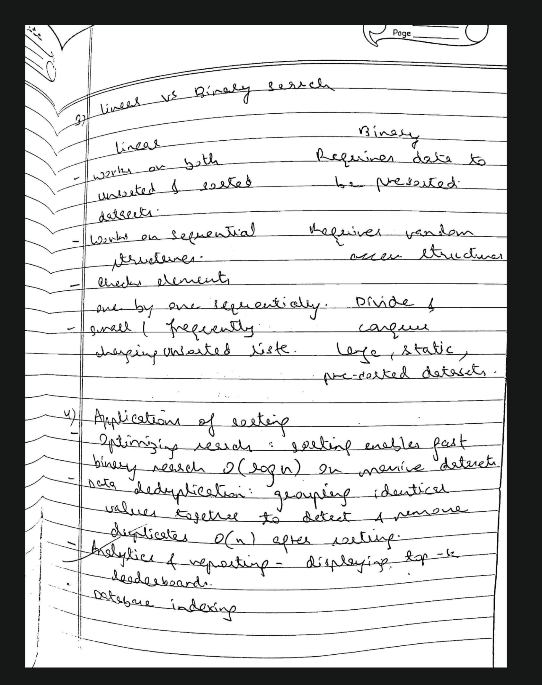 Page
3) Linear vs Binary search
Linear Binary
- works on both Requires data to
unsorted & sorted be presorted.
datasets.
- Works on sequential Requires random
structures. access structures
- Checks elements
one by one sequentially. Divide &
- small & frequently conquer
changing unsorted lists. large, static,
pre-sorted datasets.
4) Applications of sorting
- Optimizing search : sorting enables fast
binary search O(log n) on massive datasets
- Data deduplication: grouping identical
values together to detect & remove
duplicates O(n) after sorting.
- Analytics & reporting - displaying top-k
leaderboards.
. Database indexing